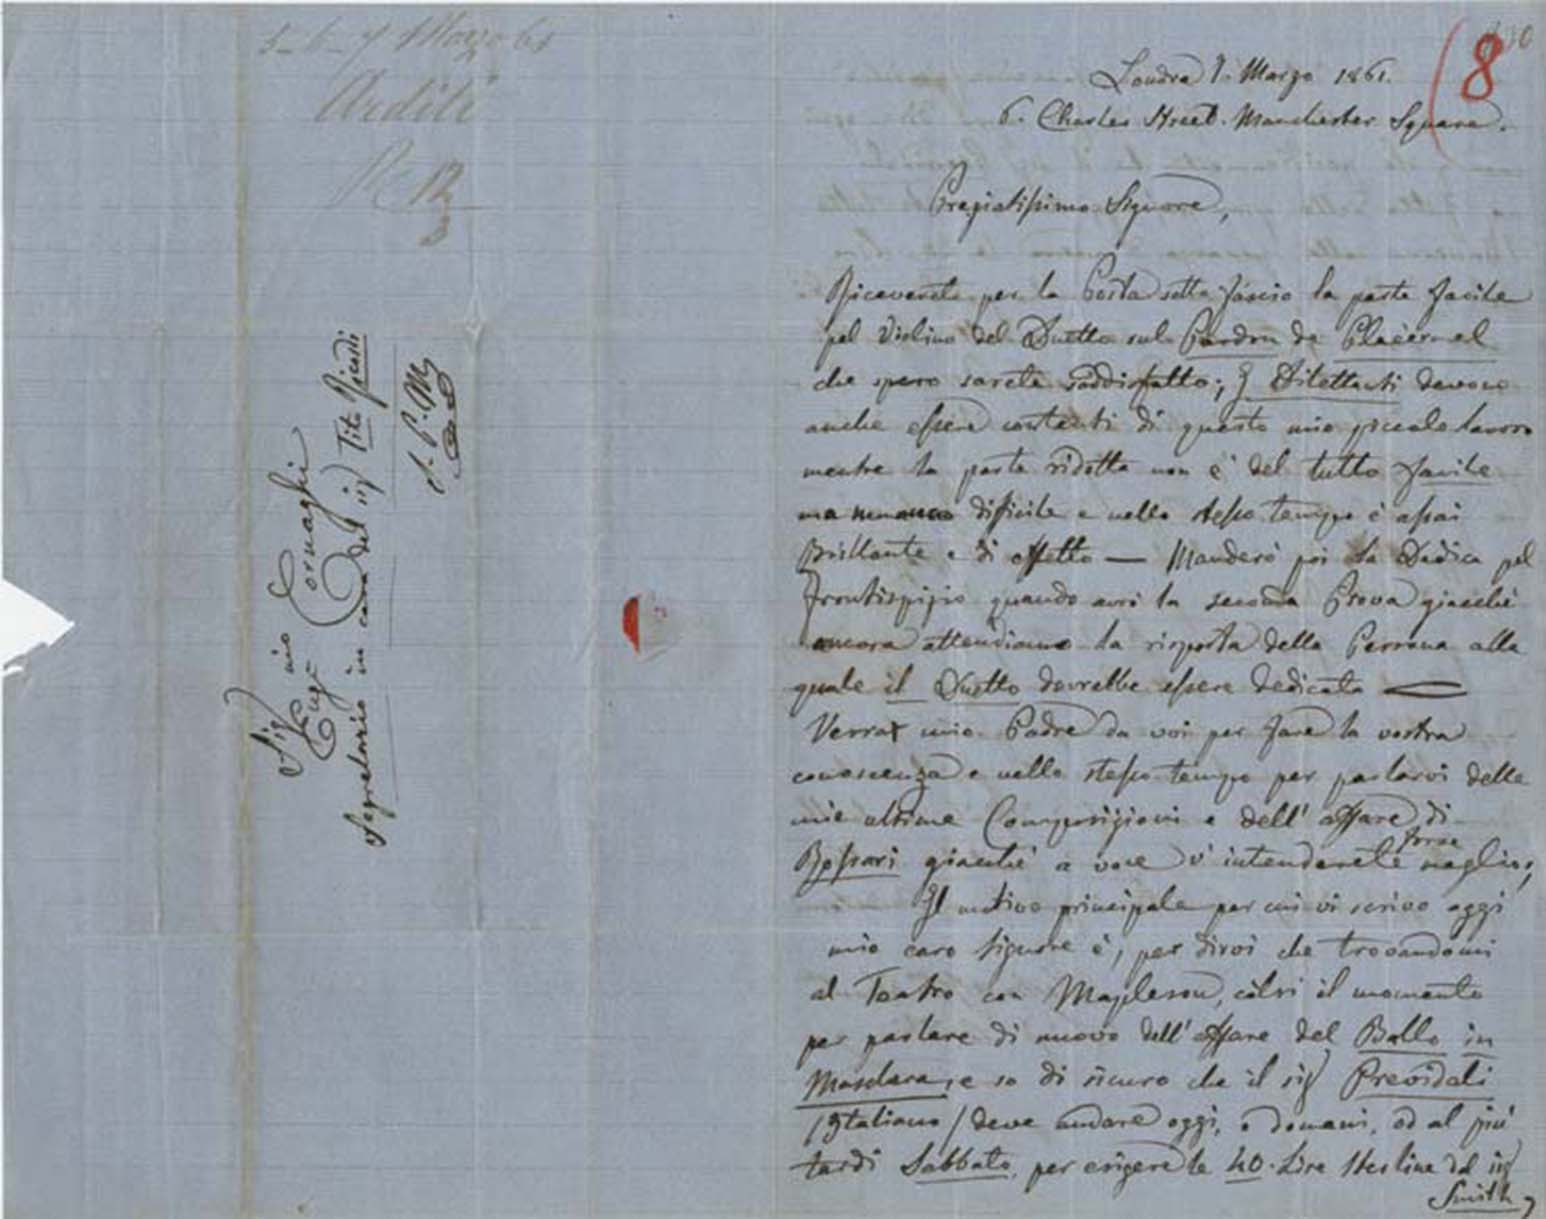 5-6-7 Marzo 61
Arditi
R 12
3
Sig
Eugnio Cornaghi
Segretario in casa del sig Tito Ricordi
S. P. M.
8
Londra 7. Marzo 1861.
6. Charles Street. Manchester Square.
Pregiatissimo Signore,
Riceverete per la Posta sotto fascio la parte facile
pel Violino del Duetto sul Pardon de Ploërmel
che spero sarete soddisfatto; I Dilettanti devono
anche essere contenti di questo mio piccolo lavoro
mentre la parte ridotta non è del tutto facile
ma nemmeno difficile e nello stesso tempo è assai
Brillante e di effetto — Manderò poi la Dedica pel
Frontispizio quando avrò la seconda Prova giacchè
ancora attendiamo la risposta della Persona alla
quale il Duetto dovrebbe essere dedicato —
Verrà mio Padre da voi per fare la vostra
conoscenza e nello stesso tempo per parlarvi delle
mie ultime Composizioni e dell' affare di
Bossari giacchè a voce v'intenderete forse meglio;
Il motivo principale per cui vi scrivo oggi
mio caro Signore è, per dirvi che trovandomi
al Teatro con Mapleson, colsi il momento
per parlare di nuovo dell' affare del Ballo in
Maschera, e so di sicuro che il sig Previdali
/Italiano/ deve andare oggi, o domani, od al più
tardi Sabbato, per esigere le 40. Lire Sterline dal sig
Smith,